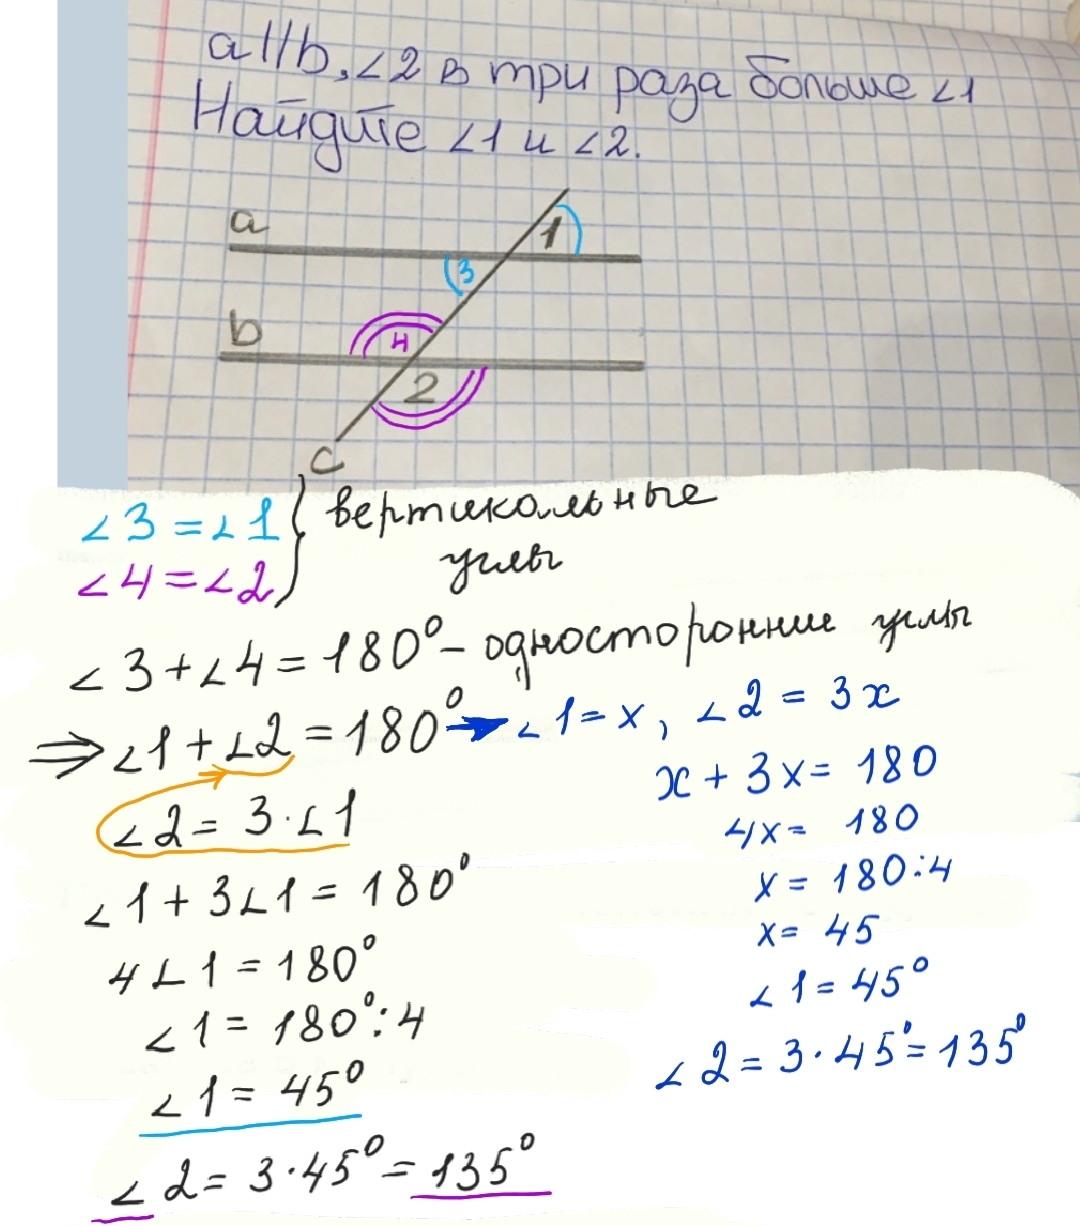 a||b, ∠2 в три раза больше ∠1
Найдите ∠1 и ∠2.
a
1
3
b
4
2
c
∠3 = ∠1 } вертикальные
∠4 = ∠2 углы
∠3 + ∠4 = 180° - односторонние углы
⇒ ∠1 + ∠2 = 180° → ∠1 = x, ∠2 = 3x
x + 3x = 180
∠2 = 3·∠1
4x = 180
∠1 + 3∠1 = 180°
x = 180:4
x = 45
4∠1 = 180°
∠1 = 45°
∠1 = 180°:4
∠2 = 3·45° = 135°
∠1 = 45°
∠2 = 3·45° = 135°